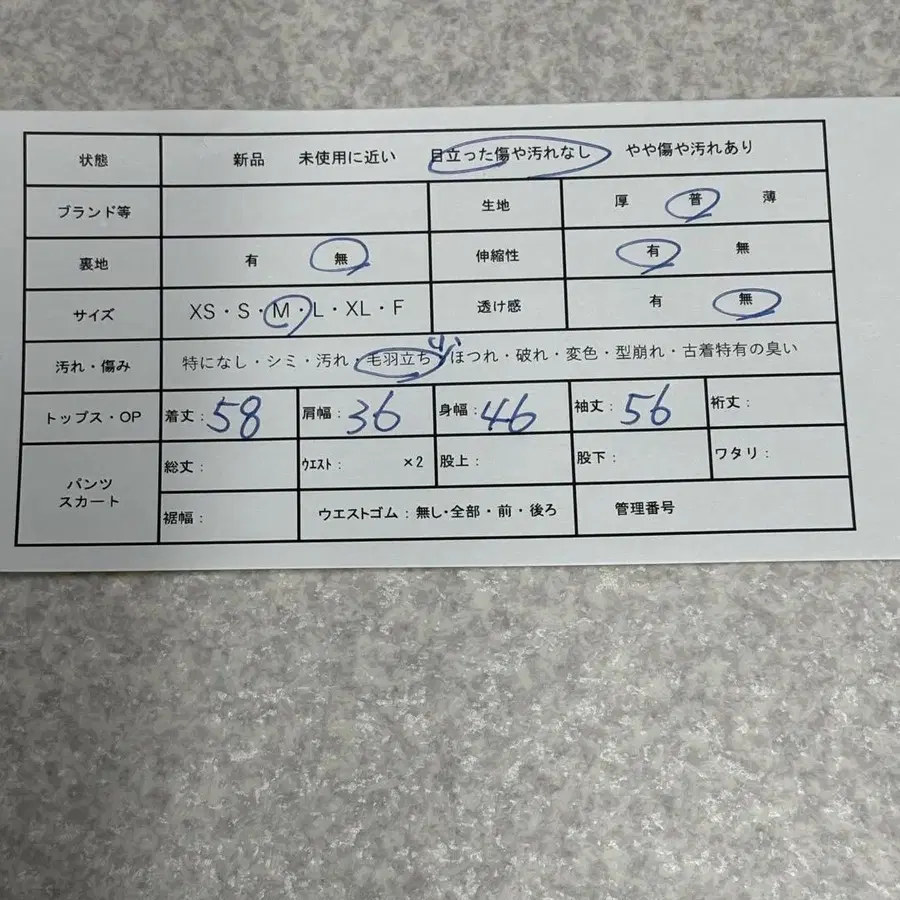 状態 新品 未使用に近い 目立った傷や汚れなし やや傷や汚れあり
ブランド等 生地 厚 普 薄
裏地 有 無 伸縮性 有 無
サイズ XS・S・M・L・XL・F 透け感 有 無
汚れ・傷み 特になし・シミ・汚れ・毛羽立ち・ほつれ・破れ・変色・型崩れ・古着特有の臭い
トップス・OP 着丈：58 肩幅：36 身幅：46 袖丈：56 裄丈：
パンツ
スカート
総丈： ｳｴｽﾄ： ×2 股上： 股下： ワタリ：
裾幅： ウエストゴム：無し・全部・前・後ろ 管理番号